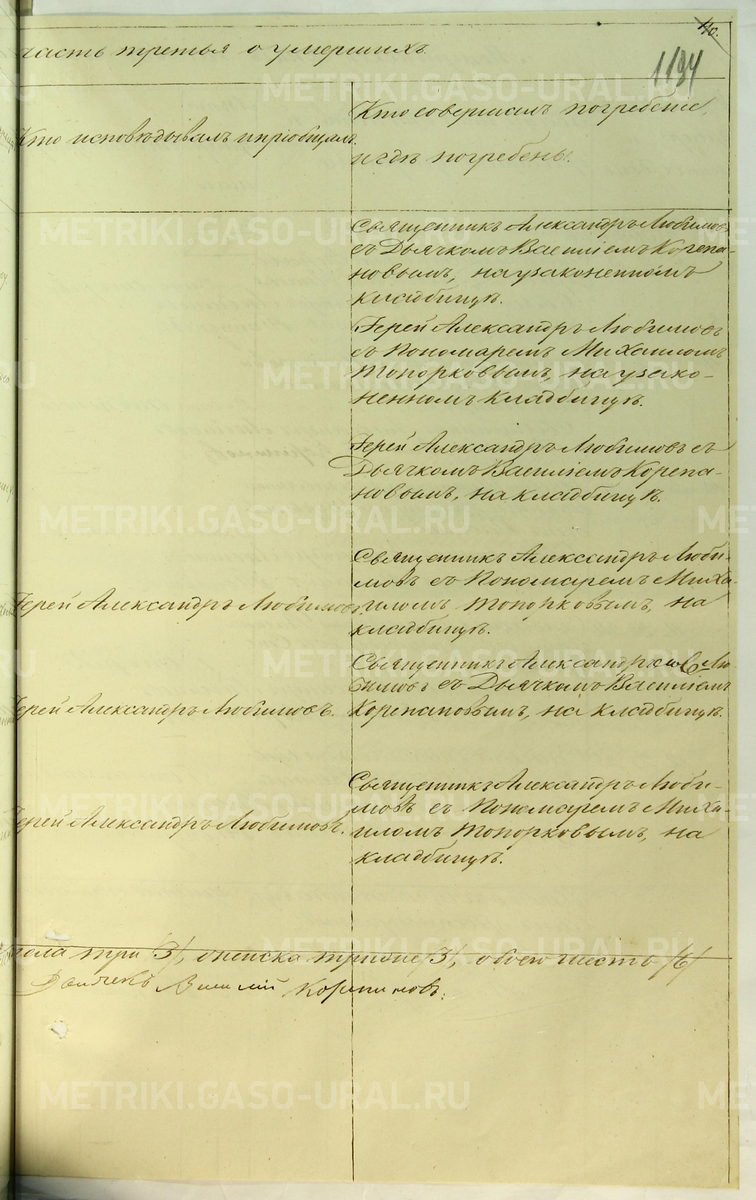 40.
1194
часть третья о умершихъ.
Кто исповѣдывалъ и пріобщалъ.
Кто совершалъ погребеніе,
и гдѣ погребены.
Священникъ Александръ Любимовъ
съ Дьячкомъ Василіемъ Корепа-
новымъ, на узаконенномъ
кладбищѣ.
Іерей Александръ Любимовъ
съ Пономаремъ Михаиломъ
Топорковымъ, на узако-
ненномъ кладбищѣ.
Іерей Александръ Любимовъ съ
Дьячкомъ Василіемъ Корепа-
новымъ, на кладбищѣ.
Іерей Александръ Любимовъ.
Священникъ Александръ Люби-
мовъ съ Пономаремъ Миха-
иломъ Топорковымъ, на
кладбищѣ.
Іерей Александръ Любимовъ.
Священникъ Александръ Лю
бимовъ съ Дьячкомъ Василіемъ
Корепановымъ, на кладбищѣ.
Іерей Александръ Любимовъ.
Священникъ Александръ Люби-
мовъ съ Пономаремъ Миха-
иломъ Топорковымъ, на
кладбищѣ.
пола три /3/, женска трое /3/, обоего шесть /6/
Дьячекъ Василій Корепановъ.
METRIKI.GASO-URAL.RU